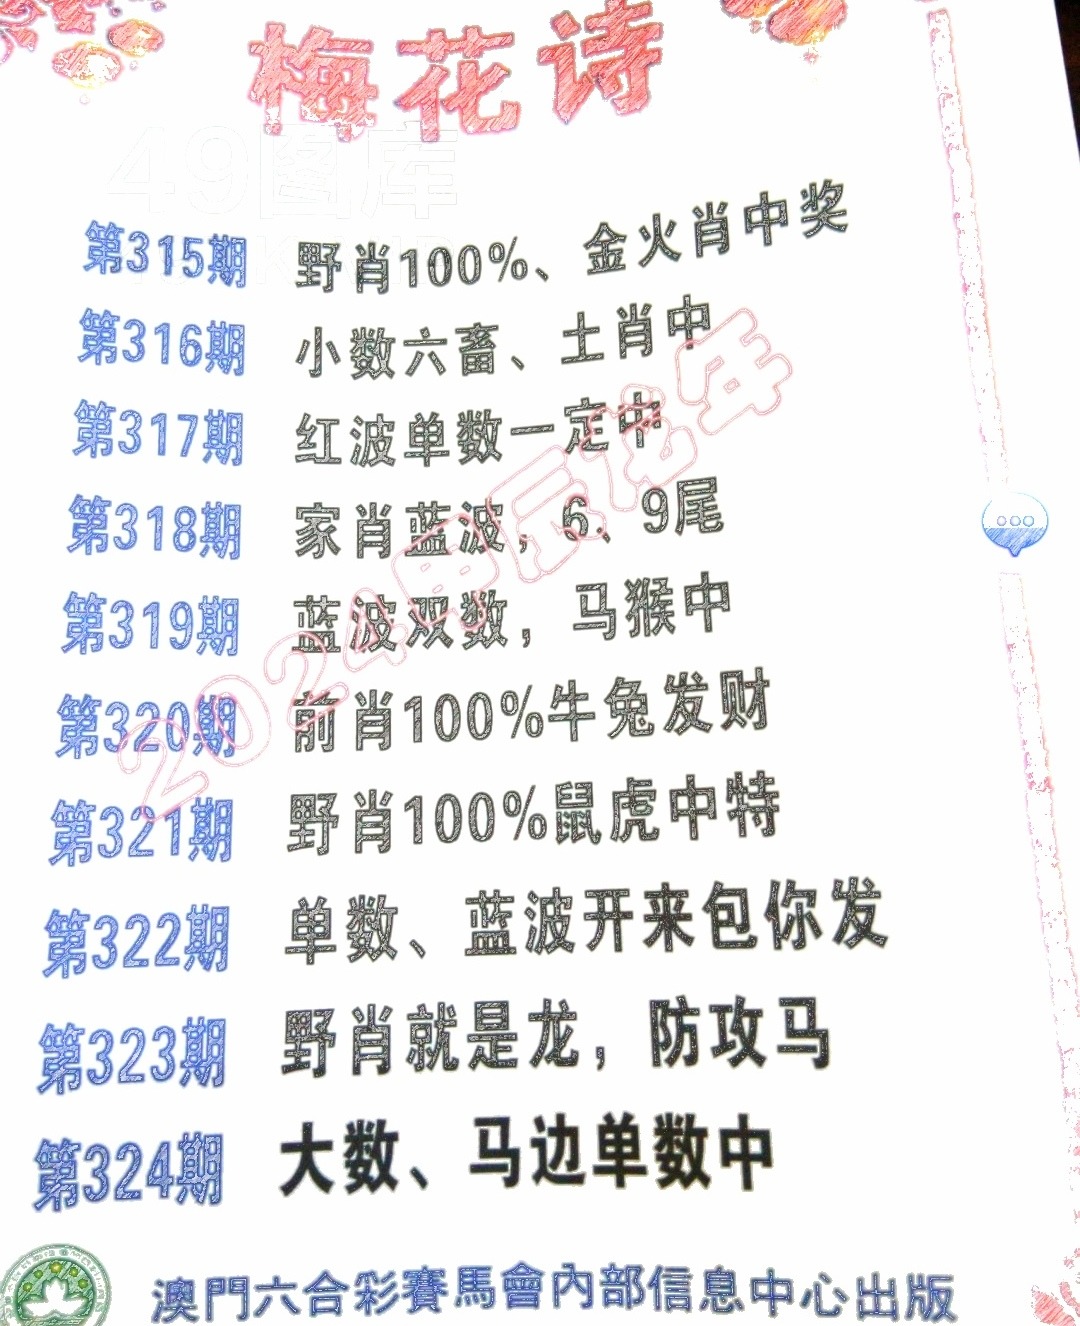 梅花诗
49图库
第315期 野肖100%、金火肖中奖
第316期 小数六畜、土肖中
第317期 红波单数一定中
第318期 家肖蓝波，6、9尾
第319期 蓝波双数，马猴中
第320期 前肖100%牛兔发财
第321期 野肖100%鼠虎中特
第322期 单数、蓝波开来包你发
第323期 野肖就是龙，防攻马
第324期 大数、马边单数中
2024甲辰龙年
澳門六合彩賽馬會內部信息中心出版